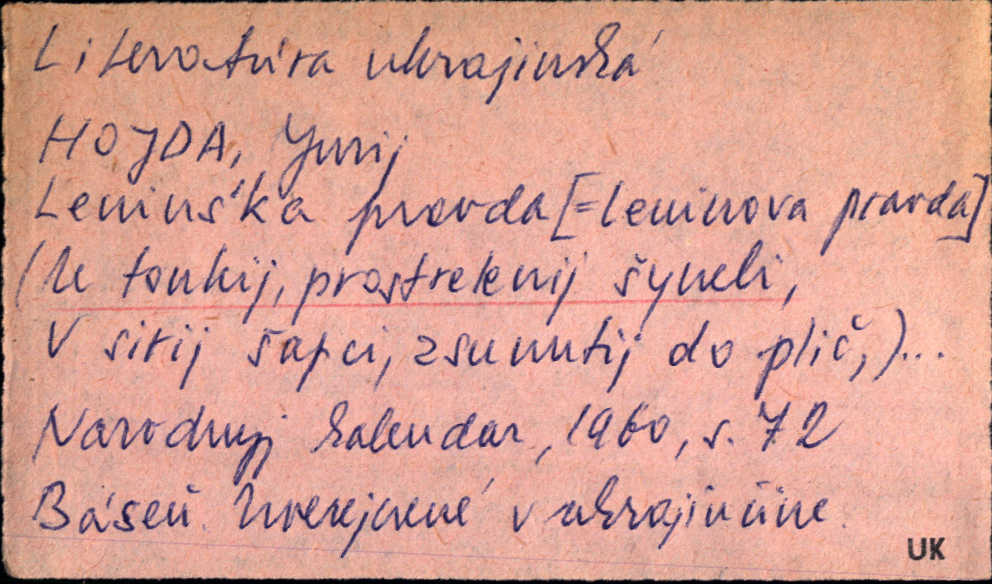 Literatúra ukrajinská
HOJDA, Yurij
Lenins'ka pravda [=Leninova pravda]
(U tonkij, prostrelenij šyneli,
V sirij šapci, zsunutij do plič,)...
Narodnyj kalendar, 1960, s. 72
Báseň. Zverejnené v ukrajinčine.
UK